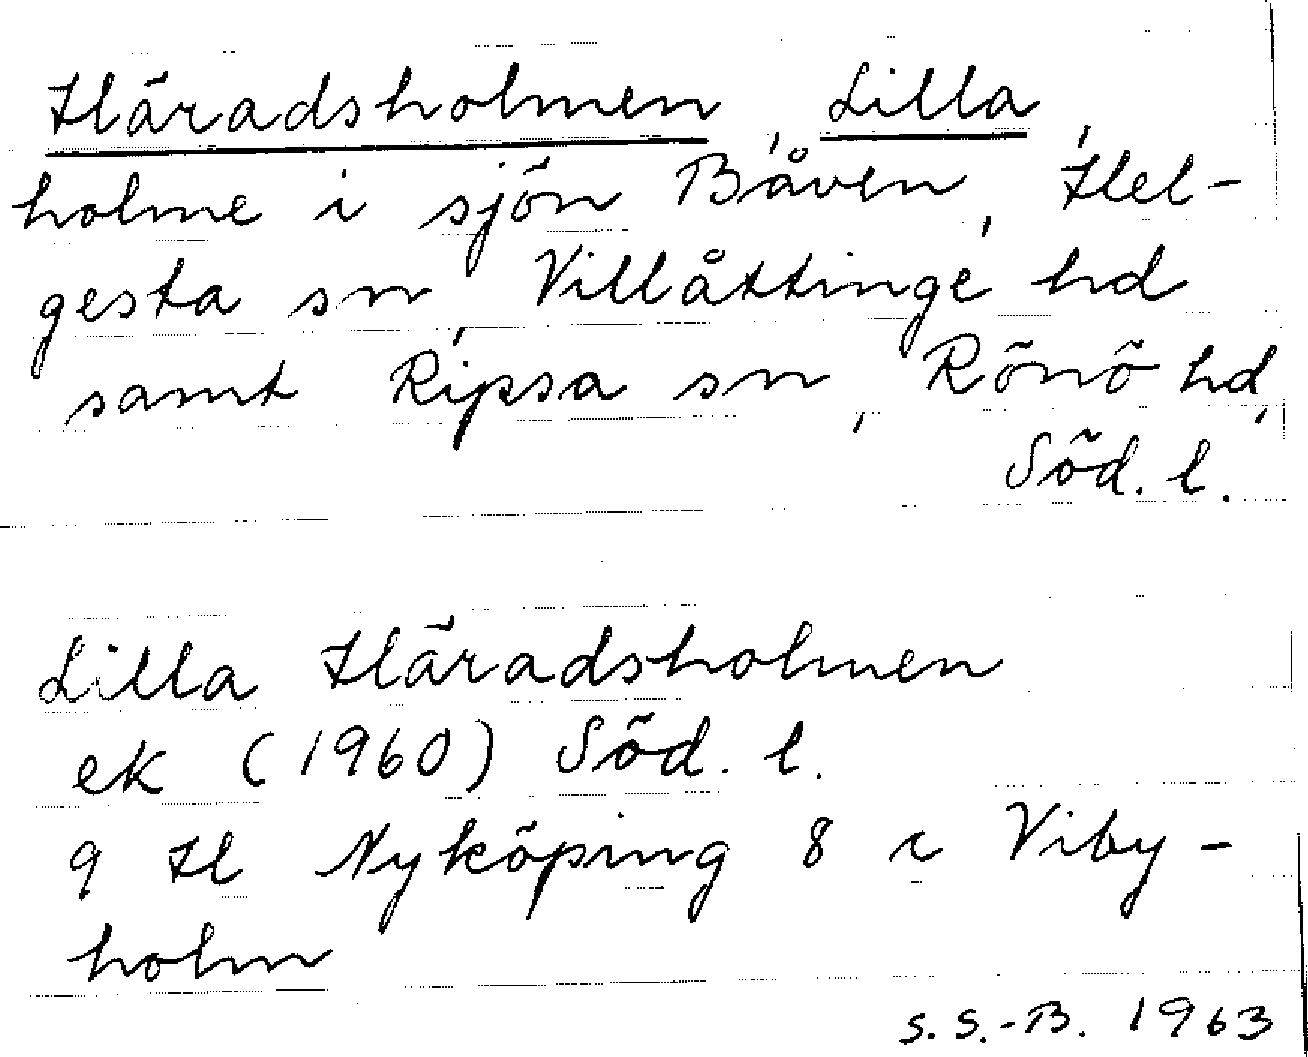 Häradsholmen, Lilla,
holme i sjön Båven, Hel-
gesta sn, Villåttinge hd
samt Ripsa sn, Rönö hd,
Söd. l.
Lilla Häradsholmen
ek (1960) Söd. l.
9 H Nyköping 8 c Viby-
holm
S.S.-B. 1963